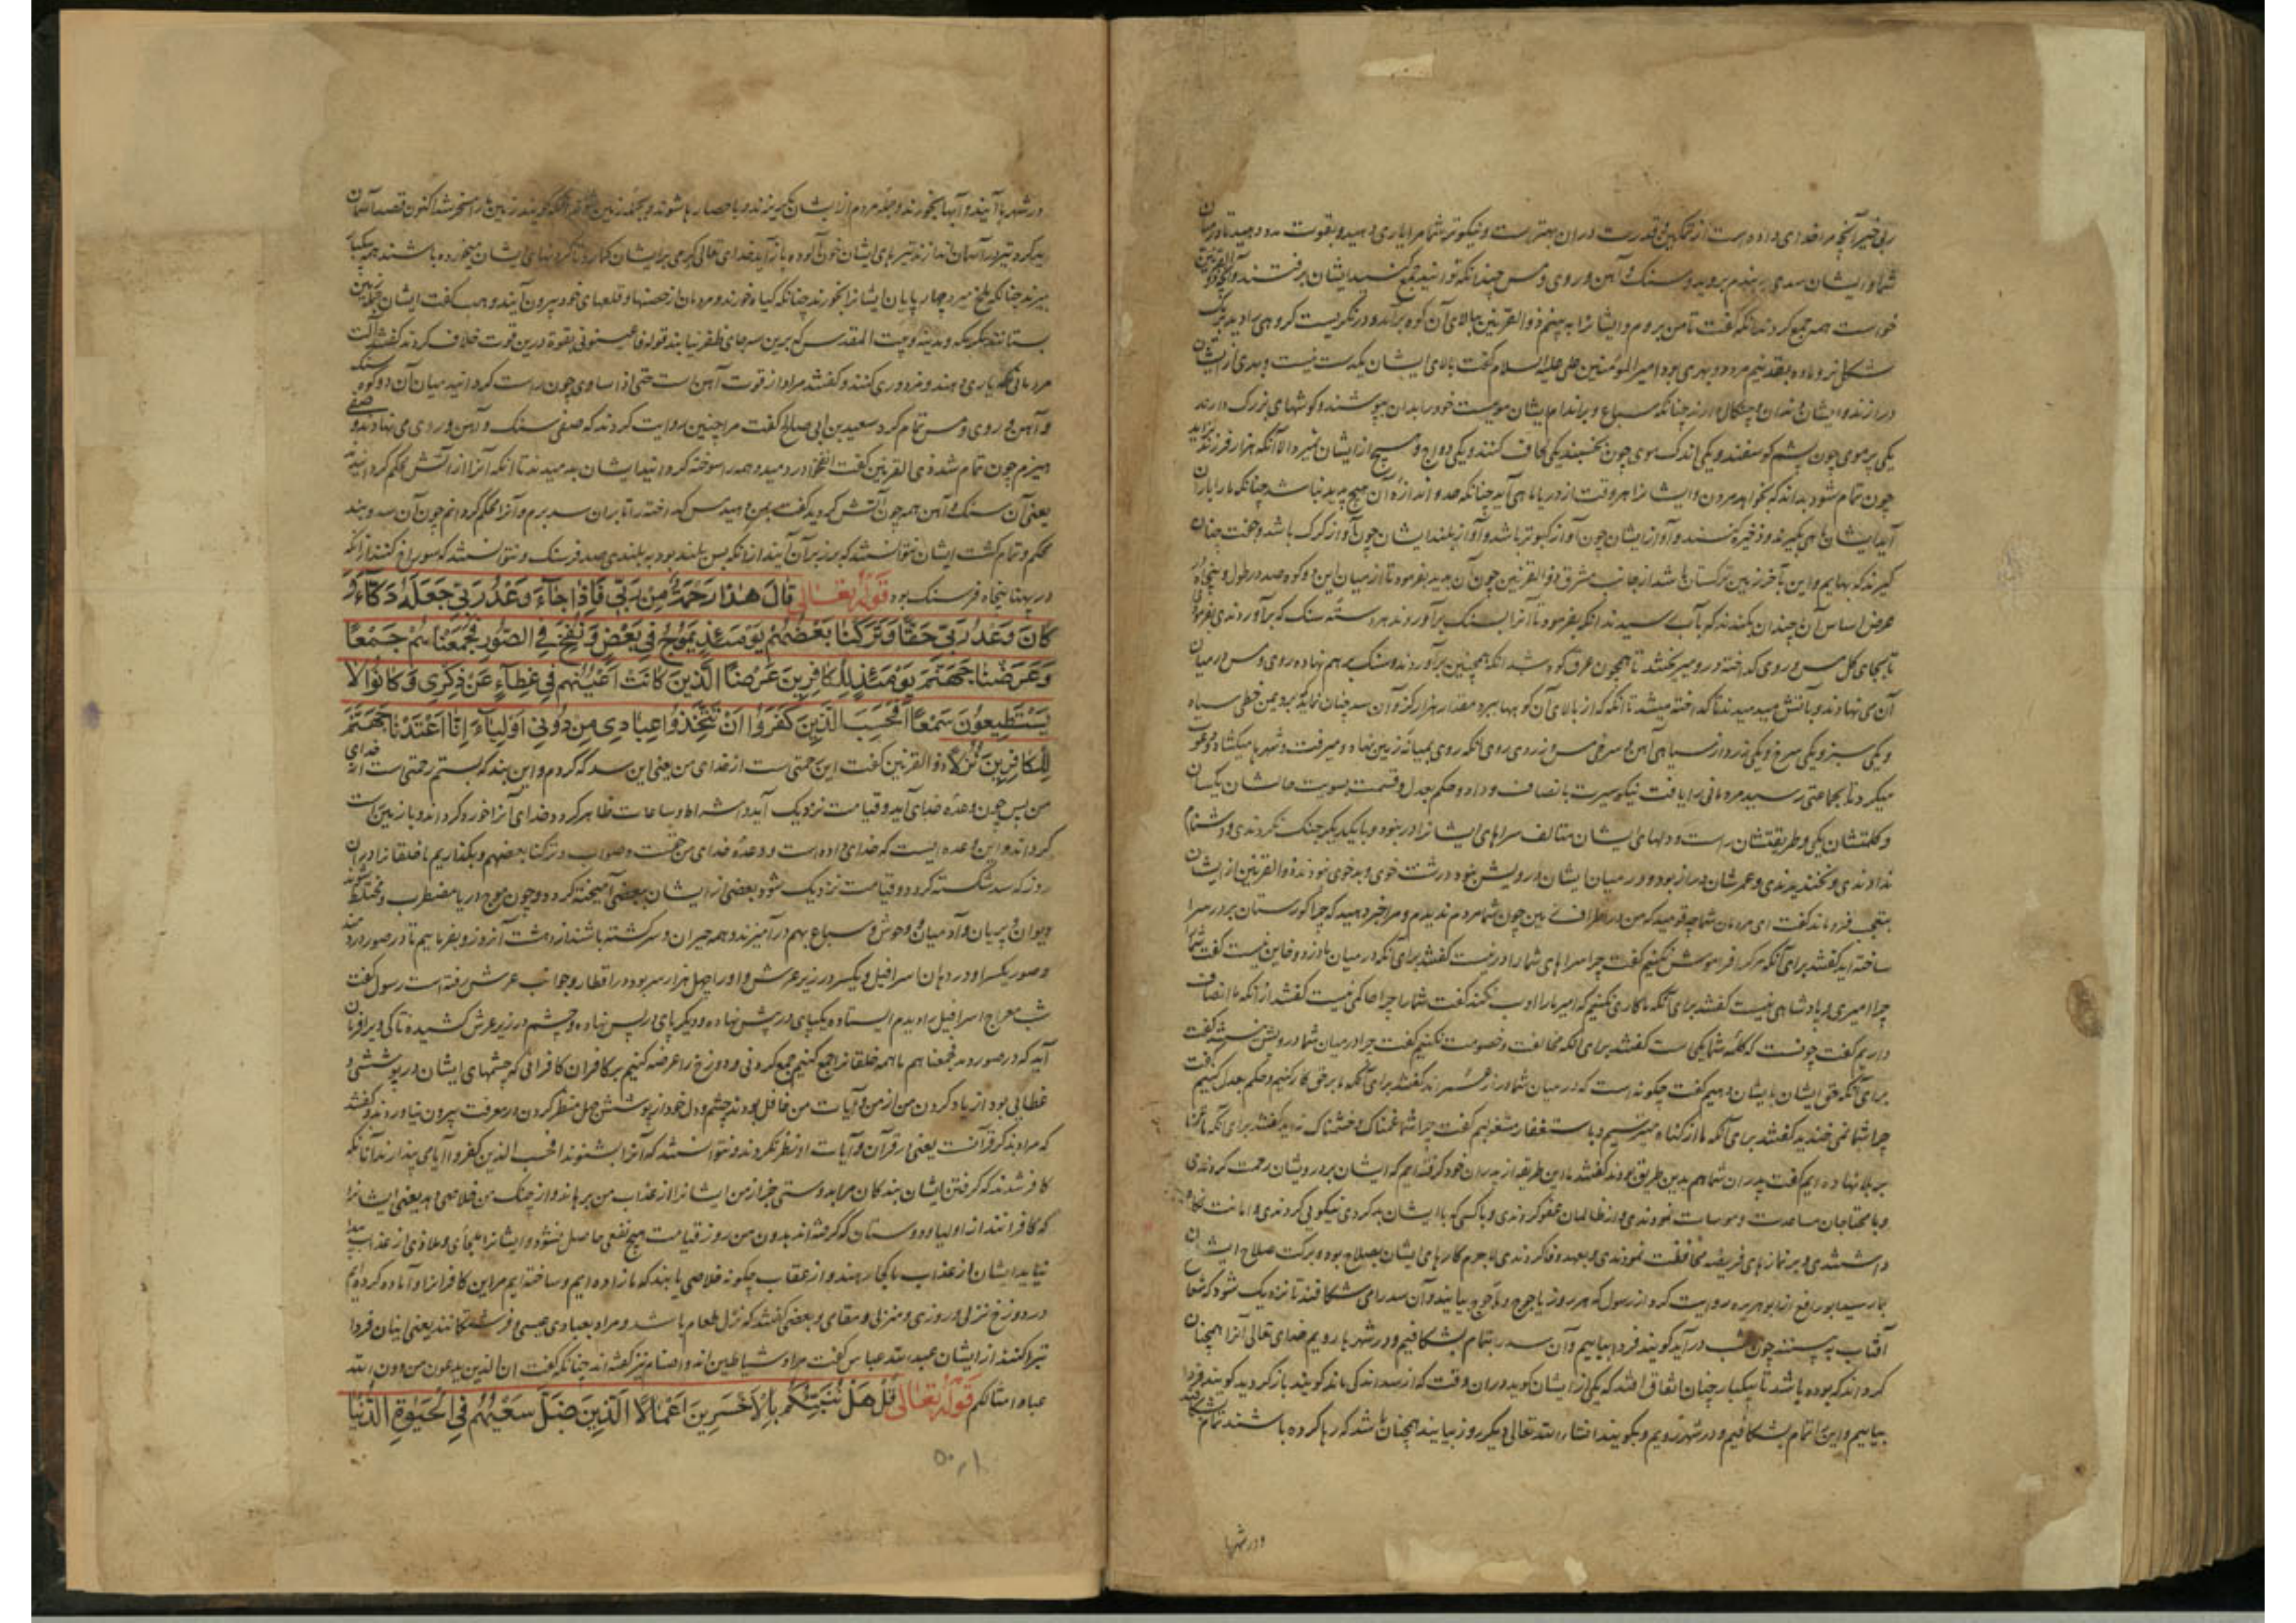 ربی خیر آنچه مرا خدای داده است از تمکین و قدرت در آن بهتر است و نیکوتر شما مرا یاری دهید و بقوت مدد دهید تا در میان
شما و ایشان سدی بر بندم بروید و سنک و آهن و روی و مس چندانکه توانید جمع کنید ایشان برفتند و آنچه ذو القرنین
خواست همه جمع کردند آنکه گفت تا من بروم و ایشانرا به بینم ذو القرنین ببالای آن کوه برآمد و در نگریست گروهی را دید بیک
شکل نر و ماده بقد نیم مرد و بهری بود امیر المؤمنین علی علیه السلام گفت بالای ایشان یکدست نیست و بهری از ایشان
درازند و ایشان دندان و چنگال دارند چنانکه سباع و بر اندام ایشان مویست خود را بدان بپوشند و گوشهای بزرگ دارند
یکی پر موی چون پشم گوسفند و یکی اندک موی چون بخسبند یکی لحاف کنند و یکی دواج و هیچ از ایشان نمیرد الا آنکه هزار فرزند بزاید
چون تمام شود بداند که بخواهد مردن و ایشانرا هر وقت از دریا ماهی آید چنانکه حد و اندازه آن هیچ پدید نباشد چنانکه ما را باران
آید ایشان ماهی بگیرند و ذخیره کنند و آواز ایشان چون آواز کبوتر باشد و آواز بلند ایشان چون آواز گرگ باشد و جفت چنان
گیرند که بهایم و این بآخر زمین ترکستان باشد از جانب مشرق ذو القرنین چون آن بدید بفرمود تا از میان این دو کوه صد در طول و پنجاه در
عرض اساس آن چندان بکندند که بآب رسیدند آنکه بفرمود تا آنرا بسنک برآوردند هر دسته سنک که برآوردندی بفرمودی
تا بجای گل مس و روی گداخته درو میریختند تا همچون عرق کوه شد آنکه همچنین برآوردند و سنک بر هم نهاده روی و مس در میان
آن می نهادند و بآتش میدمیدند تا گداخته میشد تا آنکه که از بالای آن کوهها ببرد مقدار هزار گز و آن سد چنان نماید که برد یمن خطی سیاه
و یکی سبز و یکی سرخ و یکی زرد از سیاهی آهن و سرخی مس و زردی روی آنکه روی بمیانه زمین نهاد و میرفت و شهرها میگشاد و دعوت
میکرد تا بجماعتی رسید مردمانی را یافت نیکو سیرت با انصاف و داد و حکم بعدل و قسمت بسویت حالشان یکسان
و کلمتشان یکی و طریقتشان راست و دلهای ایشان متالف سراهای ایشانرا در نبود و با یکدیگر جنک نکردندی و دشنام
ندادندی و نخندیدندی و عمرشان دراز بود و در میان ایشان درویش نبود و درشت خوی و بد خوی نبودند ذو القرنین از ایشان
بتعجب فرو ماند گفت ای مردمان شما چه قومید که من در اطراف زمین چون شما مردم ندیدم و مرا خبر دهید که چرا گورستان بر در سرا
ساخته اید گفتند برای آنکه تا مرک را فراموش نکنیم گفت چرا سراهای شما را در نیست گفتند برای آنکه در میان ما دزد و خاین نیست گفت شما
چرا امیری و پادشاهی نیست گفتند برای آنکه ما کاری نکنیم که امیر ما را ادب نکند گفت شما را چرا حاکمی نیست گفتند از آنکه ما انصاف
داریم گفت چونست که کلمه شما یکی است گفتند برای آنکه مخالفت و خصومت نکنیم گفت چرا در میان شما درویش نیست گفت
برای آنکه حق ایشان بایشان دهیم گفت چگونه است که در میان شما دراز عمرند گفتند برای آنکه ما بر حق کار کنیم و حکم بعدل کنیم گفت
چرا شما نمی خندید گفتند برای آنکه ما از گناه میترسیم و باستغفار مشغولیم گفت چرا شما غمناک و خشمناک نه اید گفتند برای آنکه ما عنا
بر بلا نهاده ایم گفت پدران شما هم بدین طریق بودند گفتند ما این طریقه از پدران خود گرفته ایم که ایشان بر درویشان رحمت کردندی
و با محتاجان مساعدت و مواسات نمودندی و از ظالمان عفو کردندی و با کسی که با ایشان بد کردی نیکویی کردندی و امانت نگاه
داشتندی و بر نمازهای فریضه محافظت نمودندی و بعهد وفا کردندی لاجرم کارهای ایشان بصلاح بود و برکت صلاح ایشان
بما رسید ابو رافع از ابو هریره روایت کرد از رسول که هر روز یاجوج و ماجوج بیایند و آن سد را می شکافند تا نزدیک شود که شعاع
آفتاب به بینند چون شب در آید گویند فردا بیاییم و آن سد بتمام بشکافیم و در شهرها رویم خدای تعالی آنرا همچنان
گرداند که بوده باشد تا یکبار چنان اتفاق افتد که یکی از ایشان گوید در آن وقت که از سد اندکی ماند گویند باز گردید گویند فردا
بیاییم و این تمام بشکافیم و در شهر رویم و بگویند انشاء الله تعالی دیگر روز بیایند همچنان باشد که رها کرده باشند تمام بشکافند
و در شهرها
در شهرها آیند و آبها بخورند و جمله مردم از ایشان بگریزند و با حصارها شوند و بجمله زمین آنکه گویند زمین ما را مسخر شد اکنون قصد آسمان
باید کرد تیر در آسمان اندازند تیرهای ایشان خون آلوده باز آید خدای تعالی کرمی بر ایشان گمارد تا گردنهای ایشان میخورده باشند همه بیکبار
بمیرند چنانکه ملخ میرد چهارپایان ایشانرا بخورند چنانکه گیاه خورند و مردمان از حصنها و قلعهای خود بیرون آیند و هب گفت ایشان جمله زمین
بستانند مگر مکه و مدینه و بیت المقدس که برین سه جای ظفر نیابند قوله فاعینونی بقوة درین قوت خلاف کردند گفتند آلت
مردمانی که یاری دهند و مزدوری کنند و گفتند مراد از قوت آهن است حتی اذا ساوی چون راست گردانید میان آن دو کوه سنک
و آهن و روی و مس تمام کرد سعید بن ابی صالح گفت مرا چنین روایت کردند که صفی سنک و آهن و روی می نهادند و صفی
هیزم چون تمام شد ذی القرنین گفت انفخوا دردمید و همه را سوخته گردانید ایشان بدمیدند تا آنکه آنرا از آتش محکم گردانید
یعنی آن سنک و آهن همه چون آتش گردید گفت بمن دهید مس گداخته را تا بران سد برم و آنرا محکم گردانم چون آن سد و بند
محکم و تمام گشت ایشان نتوانستند که بر زبر آن آیند از آنکه بس بلند بود به بلندی صد فرسنک و نتوانستند که سوراخ کنند از آنکه
در پهنا پنجاه فرسنک بود قوله تعالی قَالَ هٰذَا رَحْمَةٌ مِنْ رَبّي فَاِذَا جَآءَ وَعْدُ رَبّي جَعَلَهُ دَكَّآءَ وَ
كَانَ وَعْدُ رَبّي حَقًّا وَتَرَكْنَا بَعْضَهُمْ يَوْمَئِذٍ يَمُوجُ فِي بَعْضٍ وَنُفِخَ فِي الصُّورِ فَجَمَعْنَاهُمْ جَمْعًا
وَعَرَضْنَا جَهَنَّمَ يَوْمَئِذٍ لِلْكَافِرِينَ عَرْضًا الَّذِينَ كَانَتْ اَعْيُنُهُمْ فِي غِطَآءٍ عَنْ ذِكْرِي وَكَانُوا لَا
يَسْتَطِيعُونَ سَمْعًا اَفَحَسِبَ الَّذِينَ كَفَرُوا اَنْ يَتَّخِذُوا عِبَادِي مِنْ دُونِي اَوْلِيَآءَ اِنَّا اَعْتَدْنَا جَهَنَّمَ
لِلْكَافِرِينَ نُزُلًا ذو القرنین گفت این رحمتی است از خدای من یعنی این سد که کردم و این بند که بستم رحمتی است از خدای
من پس چون وعده خدای آید و قیامت نزدیک آید و اشراط و ساعات ظاهر گردد خدای آنرا خورد گرداند و با زمین راست
گرداند و این وعده ایست که خدای داده است و وعده خدای من حقست و صواب و ترکنا بعضهم و بگذاریم ما خلقانرا در آن
روز که سد شکسته گردد و قیامت نزدیک شود بعضی از ایشان ببعضی آمیخته گردد و چون موج دریا مضطرب و مختلط شوند
دیوان و پریان و آدمیان و وحوش و سباع بهم در آمیزند و همه حیران و سرگشته باشند از دهشت آنروز و بفرماییم تا در صور دمند
و صور یکسر او در دهان اسرافیل و یکسر در زیر عرش و او را چهل هزار سر بود در اقطار و جوانب عرش رفته است رسول گفت
شب معراج اسرافیل را دیدم ایستاده یکپای در پیش نهاده و دیگر پای از پس نهاده و چشم در زیر عرش کشیده تا کی ویرا فرمان
آید که در صور دمد فجمعناهم ما همه خلقانرا جمع کنیم جمع کردنی و دوزخ را عرضه کنیم بر کافران کافرانی که چشمهای ایشان در پوششی و
غطایی بود از یاد کردن من از من و آیات من غافل بودند چشم و دل خود از پوشش جهل منظر کردن و معرفت بیرون نیاوردند و گفتند
که مراد بذکر قرآنست یعنی از قرآن و آیات او نظر نکردند و نتوانستند که آنرا بشنوند افحسب الذین کفروا آیا می پندارند آنانکه
کافر شدند که گرفتن ایشان بندگان مرا بدوستی جز از من ایشانرا از عذاب من برهاند و از چنک من خلاصی دهد یعنی ایشانرا
که کافرانند از اولیا و دوستان که گرفته اند بدون من روز قیامت هیچ نفعی حاصل نشود و ایشانرا ملجای و ملاذی از عذاب پیدا
نیاید ایشان از عذاب ما کجا رهند و از عقاب چگونه خلاصی یابند که ما زاده ایم و ساخته ایم مر این کافرانرا و آماده کرده ایم
در دوزخ نزلی و روزی و منزلی و مقامی و بعضی گفتند که نزل طعام باشد و مراد بعبادی عیسی و فرشتگانند یعنی اینان فردا
تبرا کنند از ایشان عبد الله عباس گفت مراد شیاطین اند و اصنام نیز گفته اند چنانکه گفت ان الذین یدعون من دون الله
عباد امثالکم قوله تعالی قُلْ هَلْ نُنَبِّئُكُمْ بِالْاَخْسَرِينَ اَعْمَالًا الَّذِينَ ضَلَّ سَعْيُهُمْ فِي الْحَيٰوةِ الدُّنْيَا